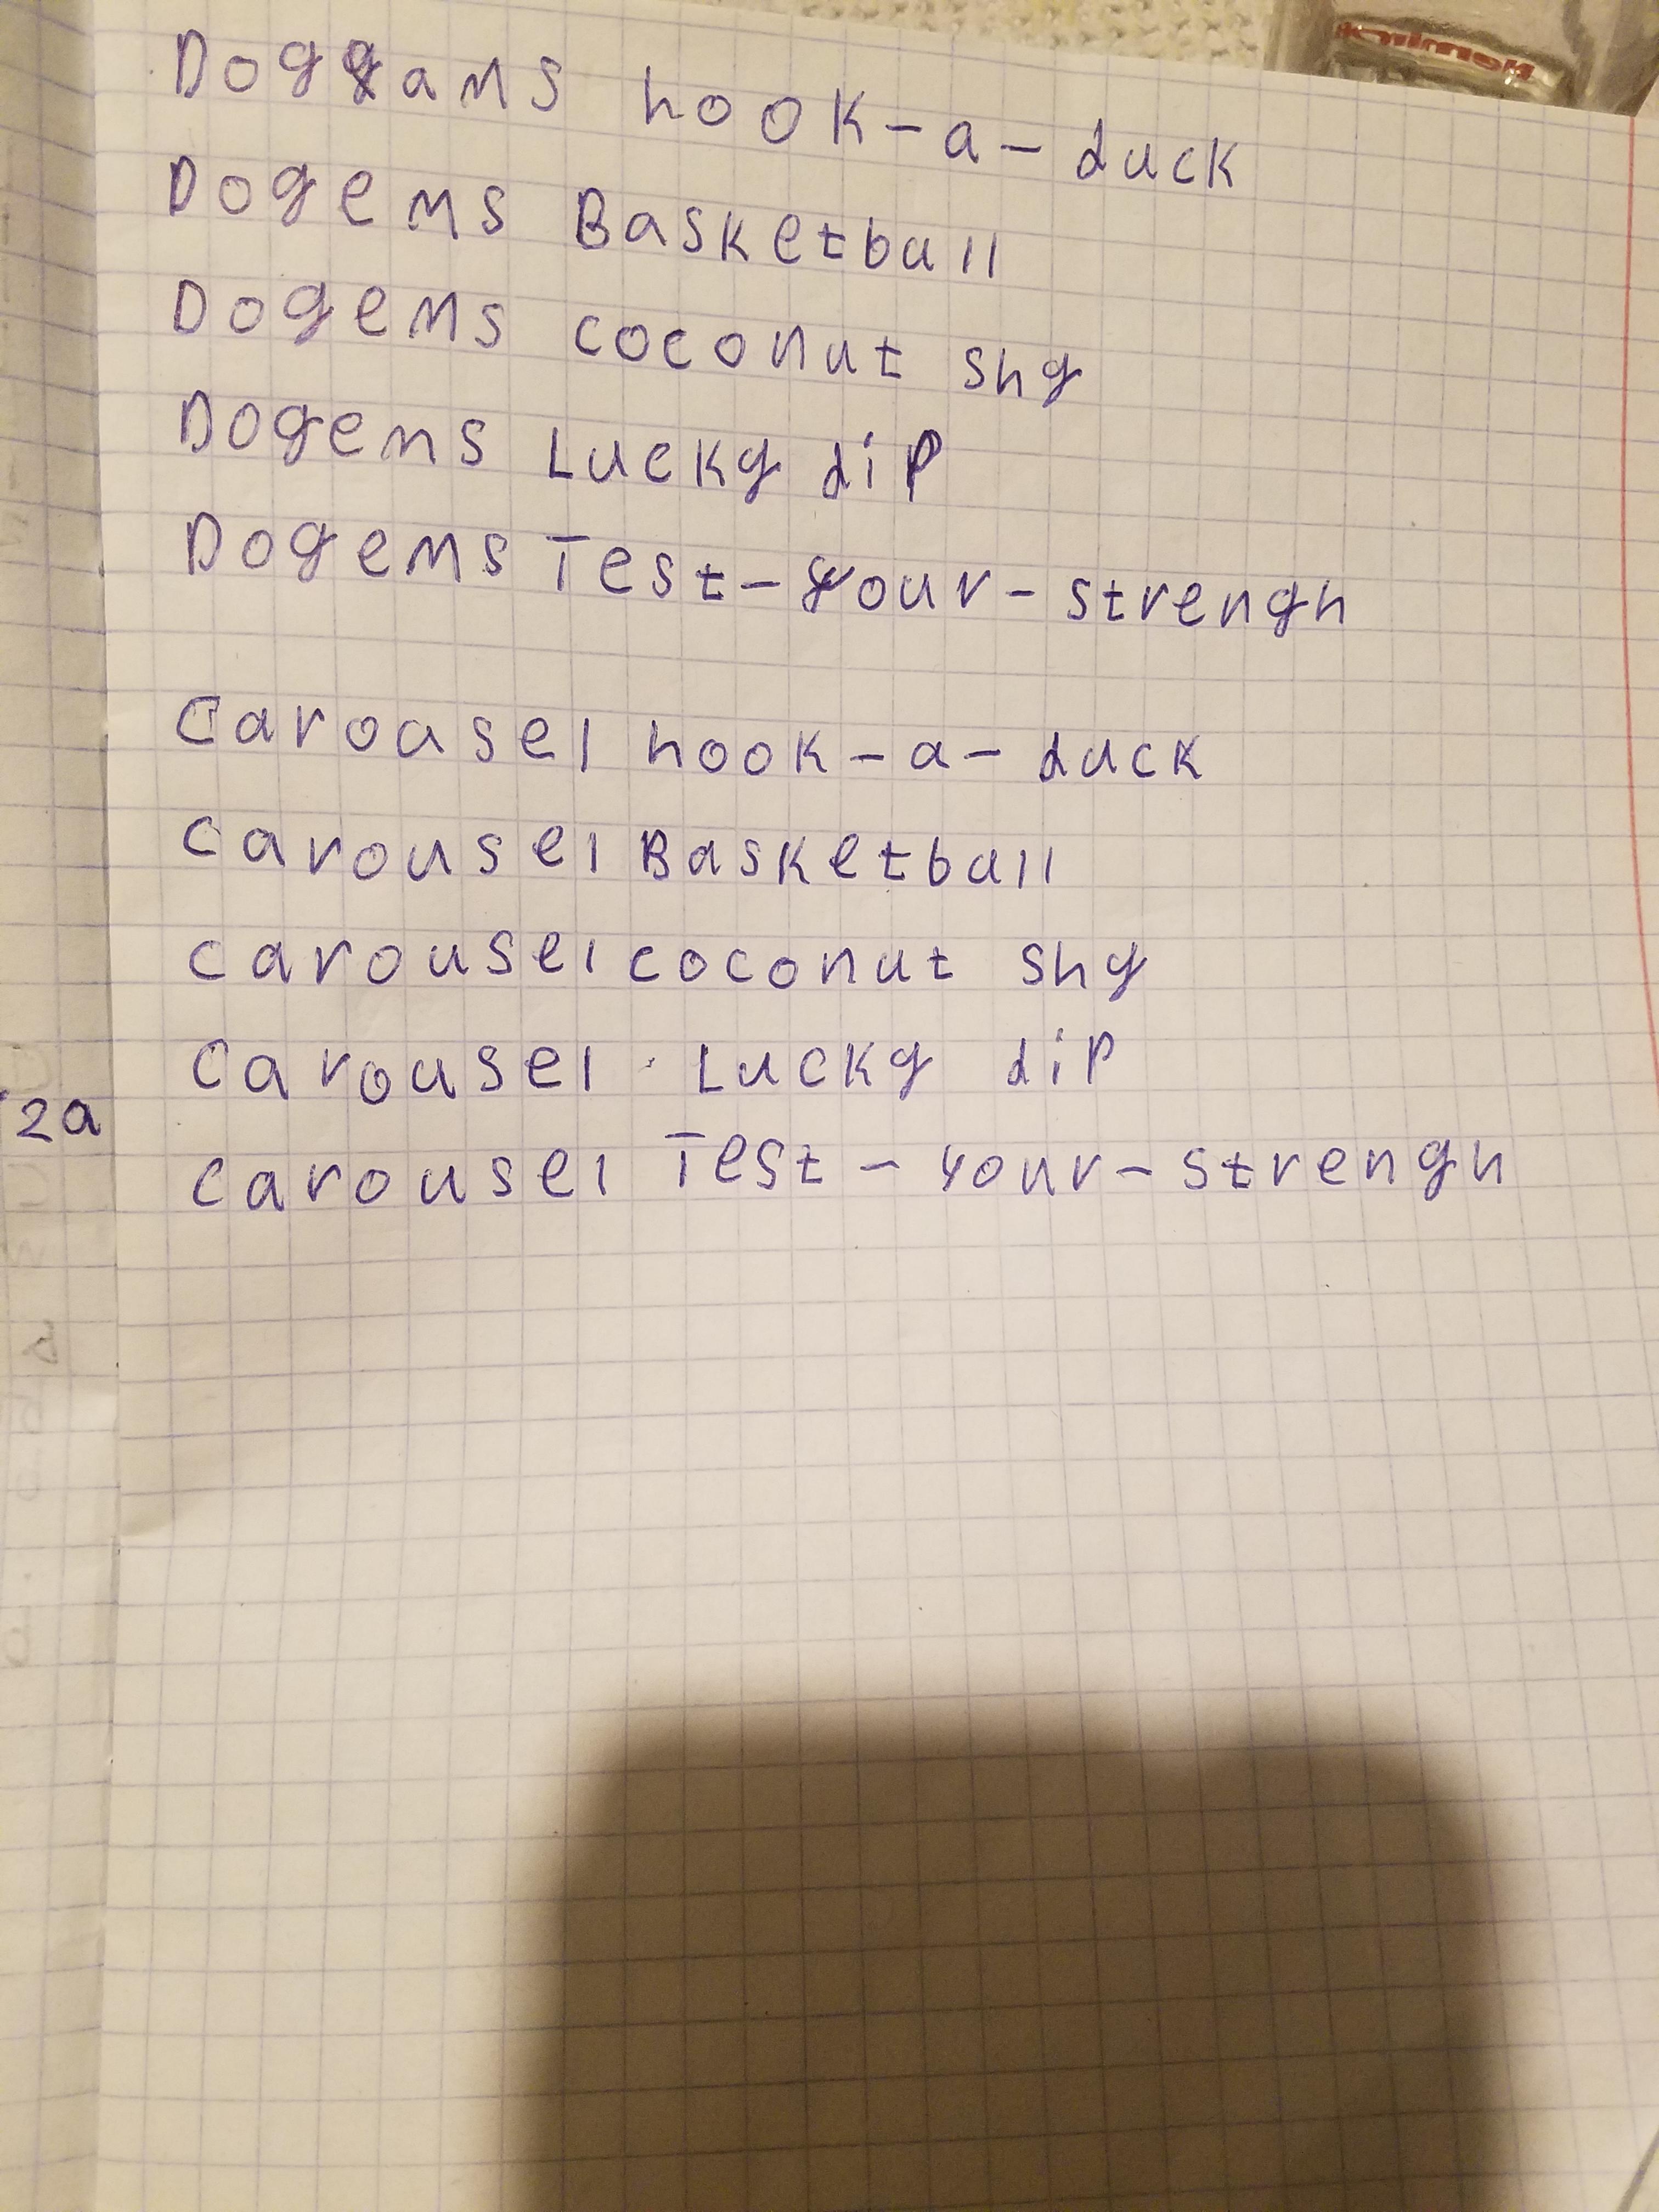 Doggams hook-a-duck
Dogems Basketball
Dogems coconut shy
Dogems Lucky dip
Dogems Test-your-strengh
Carousel hook-a-duck
carousel Basketball
carousel coconut shy
Carousel Lucky dip
2a
carousel Test-your-strengh